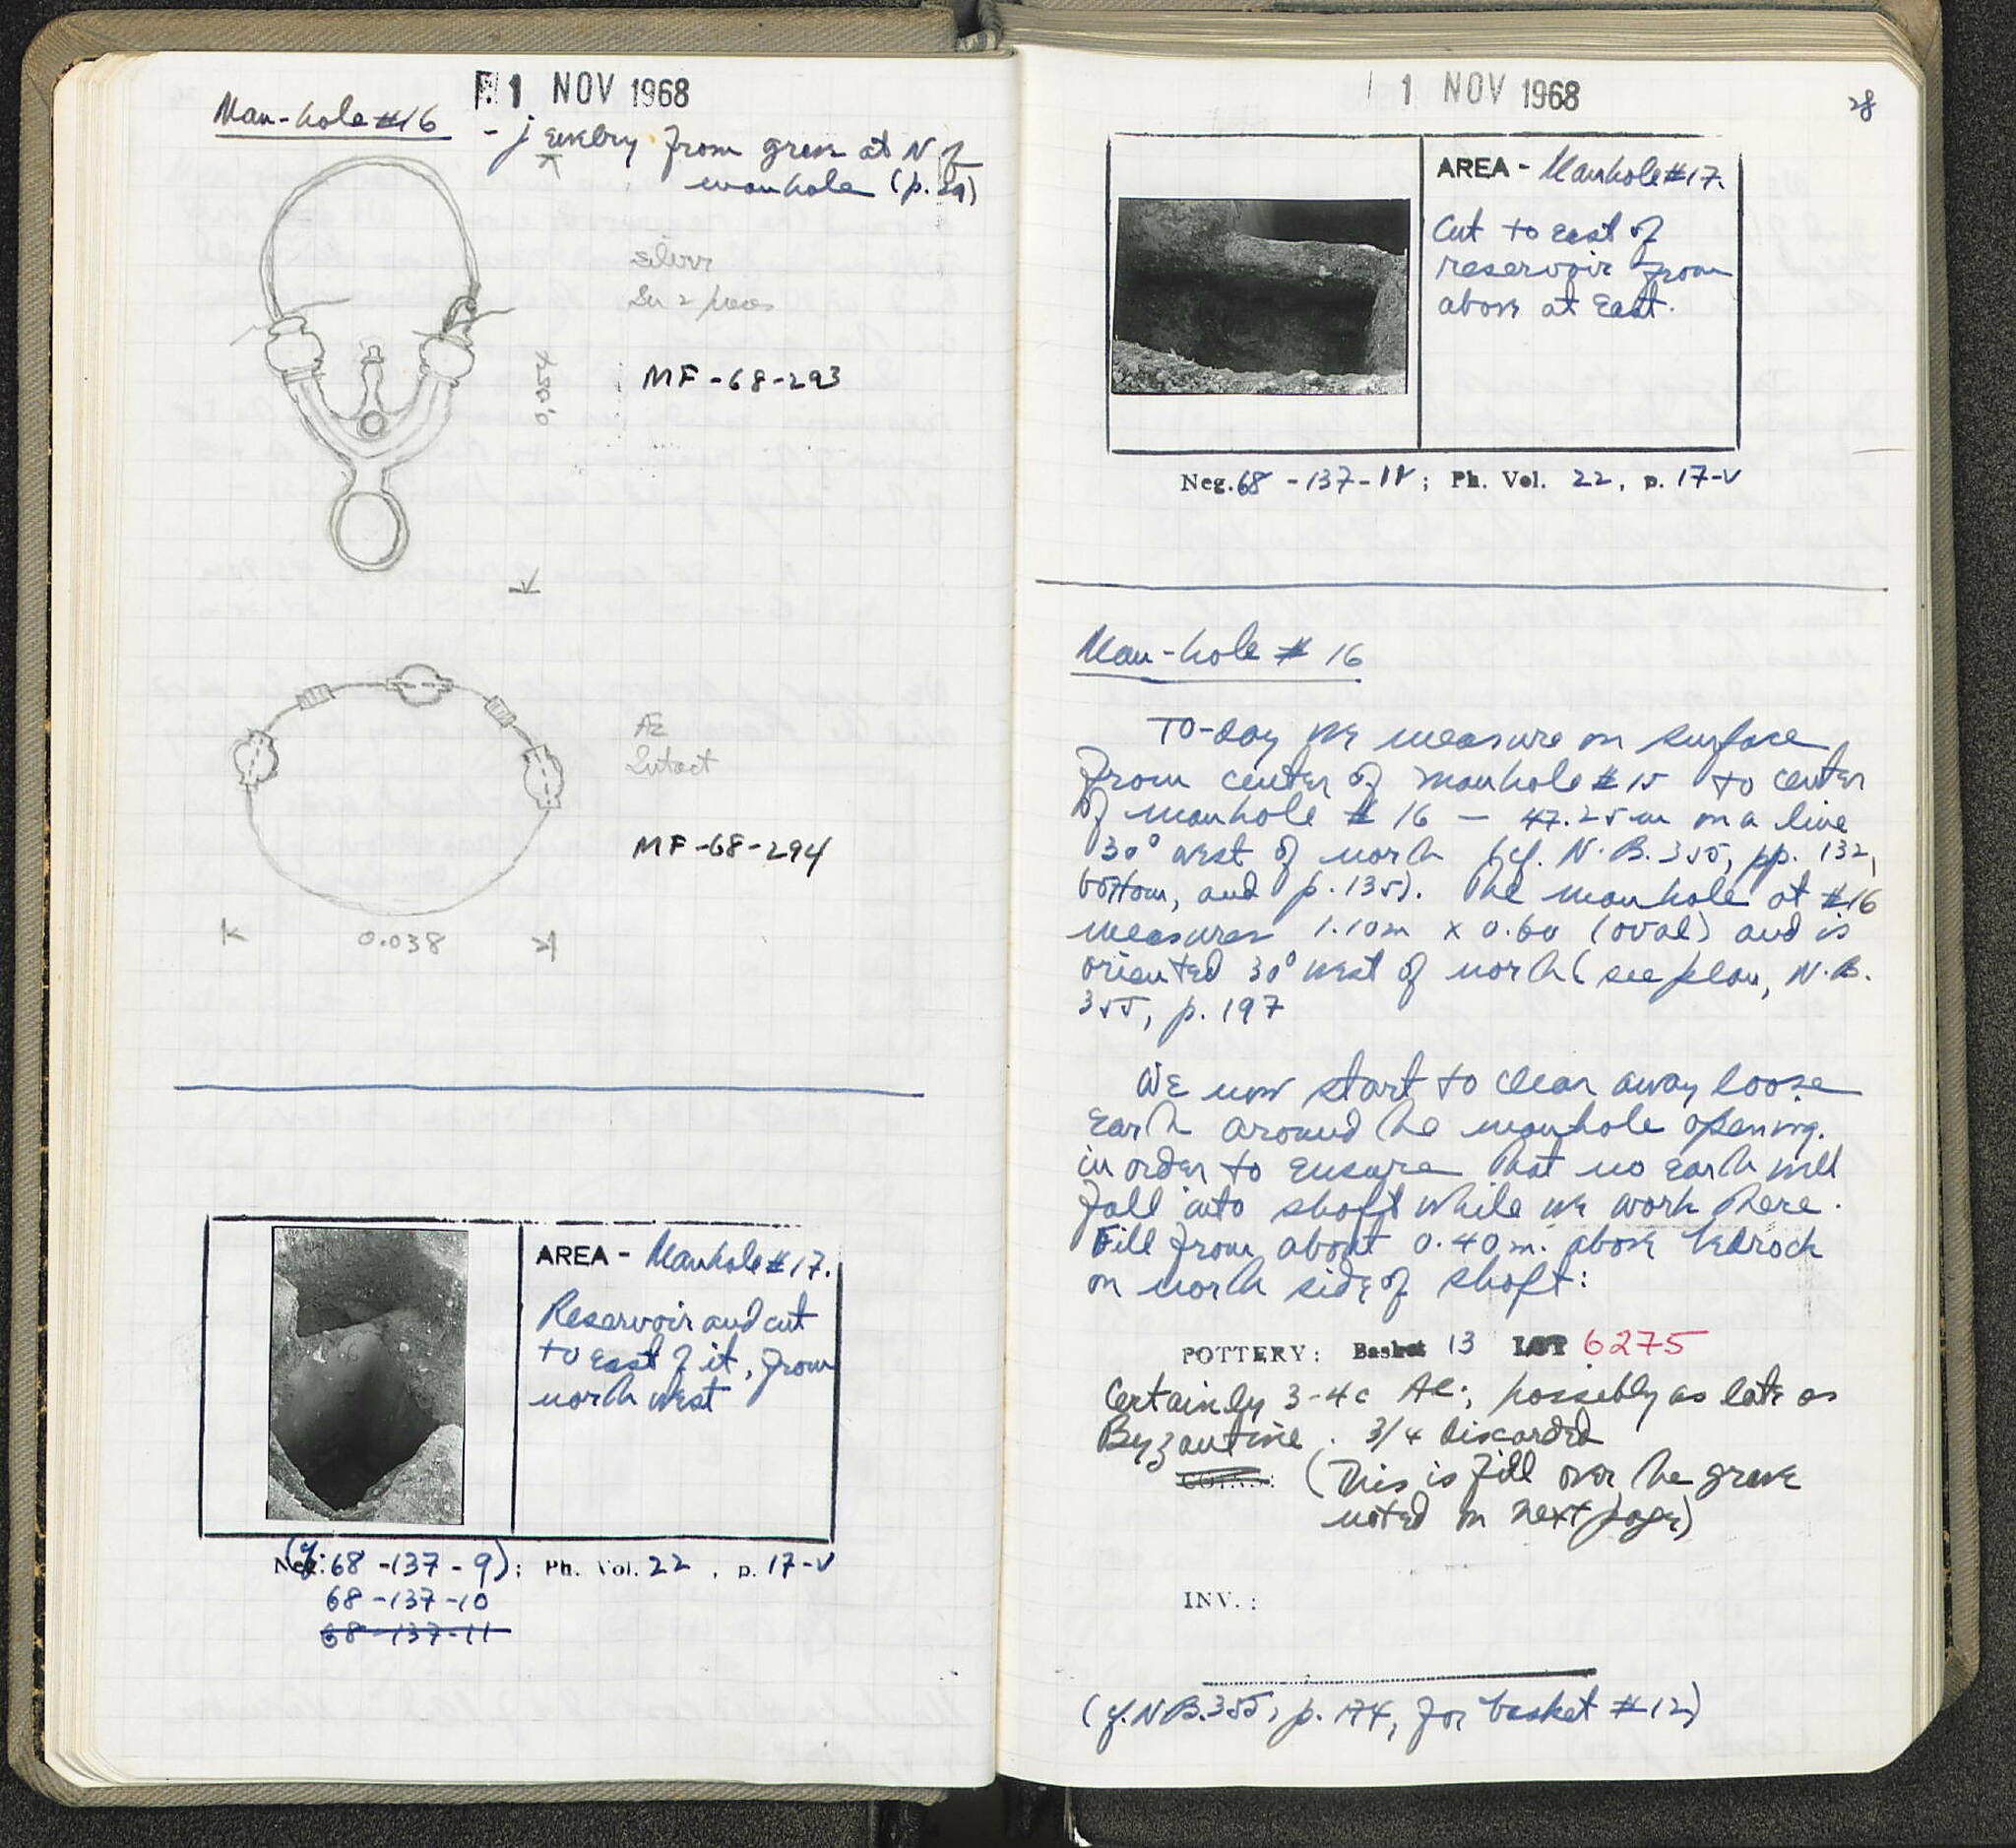 1 NOV 1968
Man-hole #16
- jewelry from grave at N of
manhole (p. 29)
silver
In 2 pieces
MF-68-293
AE
Intact
MF-68-294
0.038
AREA - Manhole #17.
Reservoir and cut
to east of it, from
north west
Neg. (cf. 68-137-9); Ph. Vol. 22, p. 17-v
68-137-10
68-137-11
1 NOV 1968
28
AREA - Manhole #17.
Cut to east of
reservoir from
above at East.
Neg. 68-137-; Ph. Vol. 22, p. 17-v
Man-hole # 16
To-day we measure on surface
from center of manhole #15 to center
of manhole # 16 — 47.25m on a line
30° west of north (cf. N.B. 355, pp. 132,
bottom, and p. 135). The manhole at #16
measures 1.10m x 0.60 (oval) and is
oriented 30° west of north (see plan, N.B.
355, p. 197
We now start to clear away loose
earth around the manhole opening.
in order to ensure that no earth will
fall into shaft while we work here.
Fill from about 0.40m. above bedrock
on north side of shaft:
POTTERY: Basket 13 LOT 6275
Certainly 3-4c AC; possibly as late as
Byzantine. 3/4 discarded
COINS: (This is fill over the grave
noted on next page)
INV.:
(cf. NB.355, p. 174, for basket #12)